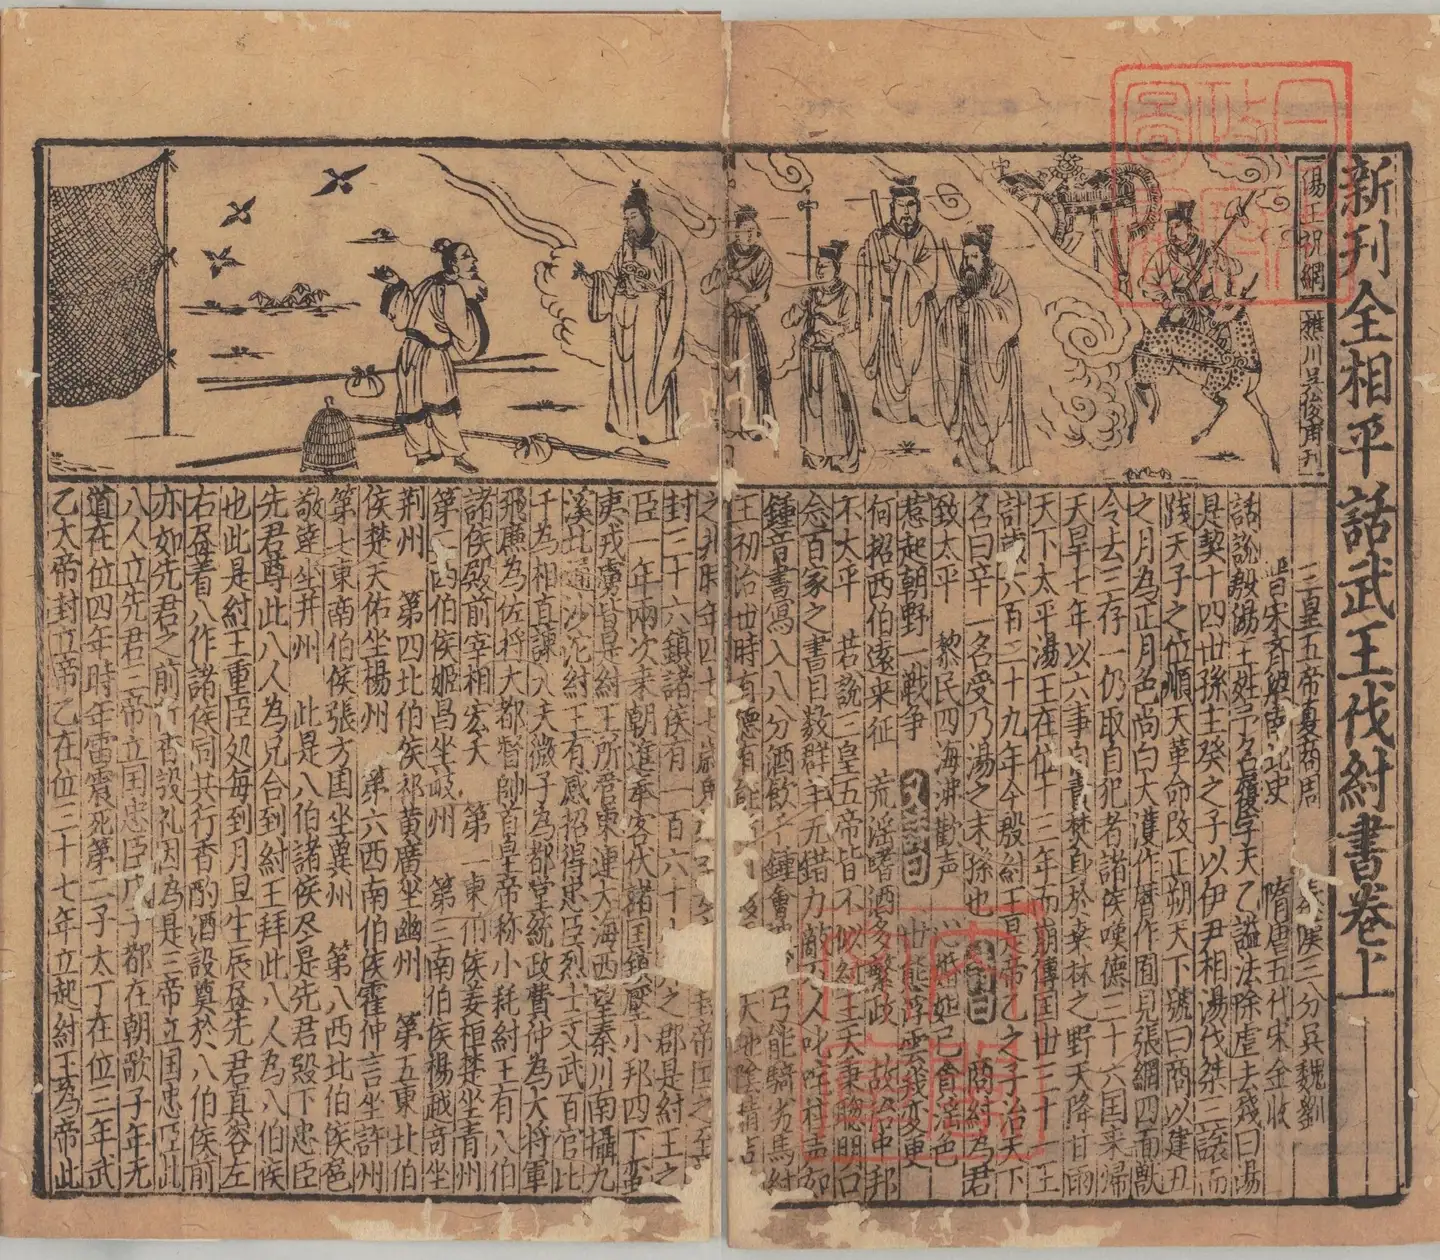 新刊全相平話武王伐紂書卷上
湯王祝網
樵川吳俊甫刊
三皇五帝夏商周 秦漢三分吳魏劉
晉宋齊梁南北史 隋唐五代宋金收
話說殷湯王姓子名履字天乙謚法除虐去殘曰湯
是契十四世孫主癸之子以伊尹相湯伐桀三讓而
践天子之位順天革命改正朔天下號曰商以建丑
之月為正月色尚白大濩作樂作囿見張網四面獸
令去三存一仍取自犯者諸侯嘆德三十六国来歸
天旱七年以六事自責焚身於桑林之野天降甘雨
天下太平湯王在位十三年而崩傳国丗三十一王
計歲六百二十九年今殷紂王是帝乙之子治天下
名曰辛 一名受乃湯之末孫也 詩曰 商紂為君
致太平 黎民四海沸歡声 妲己貪淫色
惹起朝野一戰争 又詩曰 世態浮雲幾变更
何招西伯遠来征 荒淫嗜酒多繁政 故治中邦
不太平 若說三皇五帝皆不似紂王天秉聰明口
念百家之書目数群羊无錯力敵万人叱咤柱声如
鍾音書寫入八分酒飲千鍾會 弓能騎劣馬紂
王初治世時有德有能 天地陰晴
封三十六鎮諸侯有一百六十 之郡是紂王之
臣一年兩次来朝進奉客伏諸国鎮壓小邦四下蛮
夷戎虜皆是紂王所管東連大海西望秦川南攝九
溪北通沙沱紂王有感招得忠臣烈士文武百官比
千為相直諫大夫微子為都堂統政費仲為大将軍
飛廉為佐将大都督帥首皇帝称小耗紂王有八伯
諸侯殿前宰相宏夭 第一東伯侯姜桓楚坐青州
第二西伯侯姬昌坐岐州 第三南伯侯楊越奇坐
荆州 第四北伯侯祁黄廣坐幽州 第五東北伯
侯楚天佑坐楊州 第六西南伯侯霍仲言坐許州
第七東南伯侯張方国坐兾州 第八西北伯侯
敬達坐并州 此是八伯諸侯尽是先君殿下忠臣
先君尊此八人為兄台到紂王拜此八人為八伯侯
也此是紂王重臣処每到月旦生辰昼先君真容左
右昼着八作諸侯同共行香酌酒設奠於八伯侯前
亦如先君之前祈香設礼因為是三帝立国忠臣此
八人立先君三帝立国忠臣庚子都在朝歌子年无
道在位四年時年雷震死第二子太丁在位三年武
乙大帝封立帝乙在位三十七年立起紂王為帝此